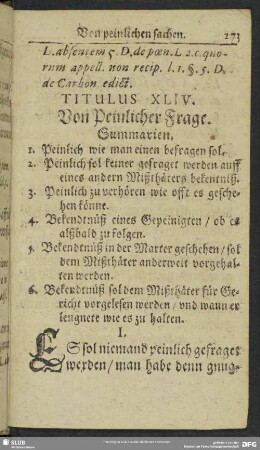 Von peinlichen sachen. 273
L. absentem 5. D. de pœn. L 2. c. quo-
rum appell. non recip. l. 1. §. 5. D.
de Carbon. edict.
TITULUS XLIV.
Von Peinlicher Frage.
Summarien.
1. Peinlich wie man einen befragen sol.
2. Peinlich sol keiner gefraget werden auff
eines andern Mißthäters bekentniß.
3. Peinlich zu verhören wie offt es gesche-
hen könne.
4. Bekendtnüß eines Gepeinigten / ob es
alßbald zu folgen.
5. Bekendtnüß in der Marter geschehen / sol
dem Mißthäter anderweit vorgehal-
ten werden.
6. Bekendtnüß sol dem Mißthäter für Ge-
richt vorgelesen werden / vnd wann er
leugnete wie es zu halten.
I.
ES sol niemand peinlich gefraget
werden / man habe denn gnug-
SLUB